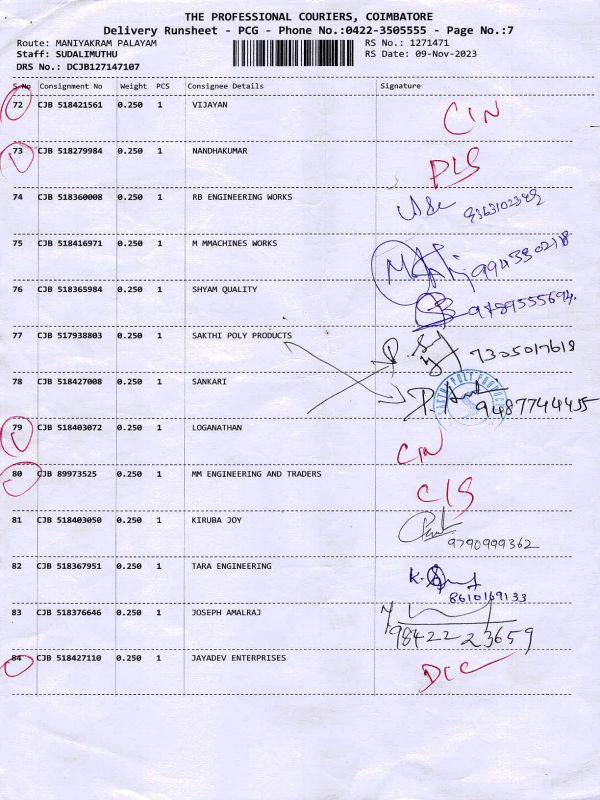 THE PROFESSIONAL COURIERS, COIMBATORE
Delivery Runsheet - PCG - Phone No.:0422-3505555 - Page No.:7
Route: MANIYAKRAM PALAYAM RS No.: 1271471
Staff: SUDALIMUTHU RS Date: 09-Nov-2023
DRS No.: DCJB127147107
S No Consignment No Weight PCS Consignee Details Signature
72 CJB 518421561 0.250 1 VIJAYAN CIN
73 CJB 518279984 0.250 1 NANDHAKUMAR DLS
74 CJB 518360008 0.250 1 RB ENGINEERING WORKS
75 CJB 518416971 0.250 1 M MMACHINES WORKS
76 CJB 518365984 0.250 1 SHYAM QUALITY 9789555694
77 CJB 517938803 0.250 1 SAKTHI POLY PRODUCTS 7305017618
78 CJB 518427008 0.250 1 SANKARI 9487744455
79 CJB 518403072 0.250 1 LOGANATHAN CIN
80 CJB 89973525 0.250 1 MM ENGINEERING AND TRADERS C/S
81 CJB 518403050 0.250 1 KIRUBA JOY 9790999362
82 CJB 518367951 0.250 1 TARA ENGINEERING 8610169133
83 CJB 518376646 0.250 1 JOSEPH AMALRAJ 9842223659
84 CJB 518427110 0.250 1 JAYADEV ENTERPRISES DLC